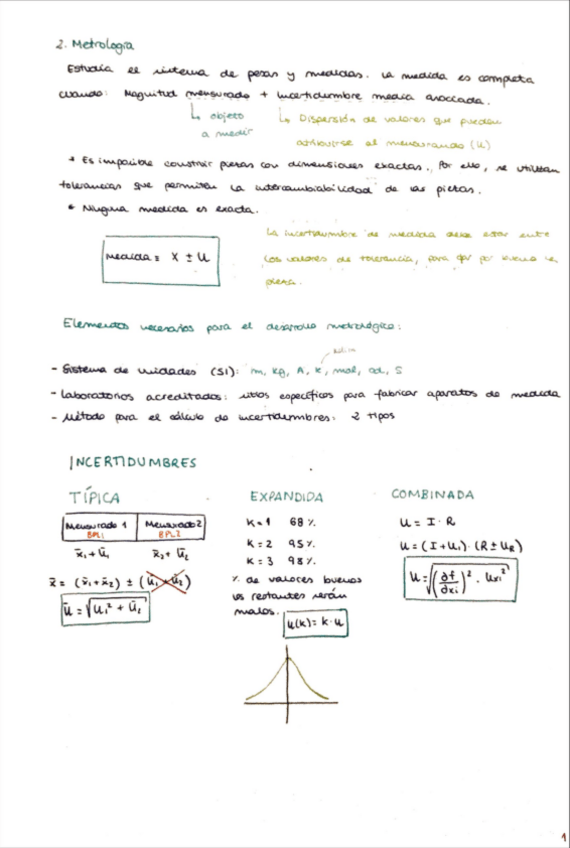 2. Metrología
Estudia el sistema de pesas y medidas. La medida es completa
cuando: Magnitud mensurado + incertidumbre media asociada.
↳ objeto
a medir
↳ Dispersión de valores que pueden
atribuirse al mensurando (u)
* Es imposible construir piezas con dimensiones exactas. Por ello, se utilizan
tolerancias que permiten la intercambiabilidad de las piezas.
* Ninguna medida es exacta.
Medida = X ± U
La incertidumbre de medida debe estar entre
los valores de tolerancia, para dar por buena la
pieza.
Elementos necesarios para el desarrollo metrológico:
- Sistema de unidades (SI): m, kg, A, K, mol, cd, S
- Laboratorios acreditados: sitios específicos para fabricar aparatos de medida
- Método para el cálculo de incertidumbres: 2 tipos
INCERTIDUMBRES
TÍPICA
Mensurado 1
BPL1
Mensurado 2
BPL2
x̄₁ + ū₁
x̄₂ + ū₂
x̄ = (x̄₁ + x̄₂) ± (ū₁ + ū₂)
ū = √u₁² + ū₂²
EXPANDIDA
K = 1 68 %
K = 2 95 %
K = 3 98 %
% de valores buenos
los restantes serán
malos.
u(k) = k · u
COMBINADA
U = I · R
U = (I + U₁) · (R ± U_R)
U = √(∂f/∂xi)² · Uxi²
1